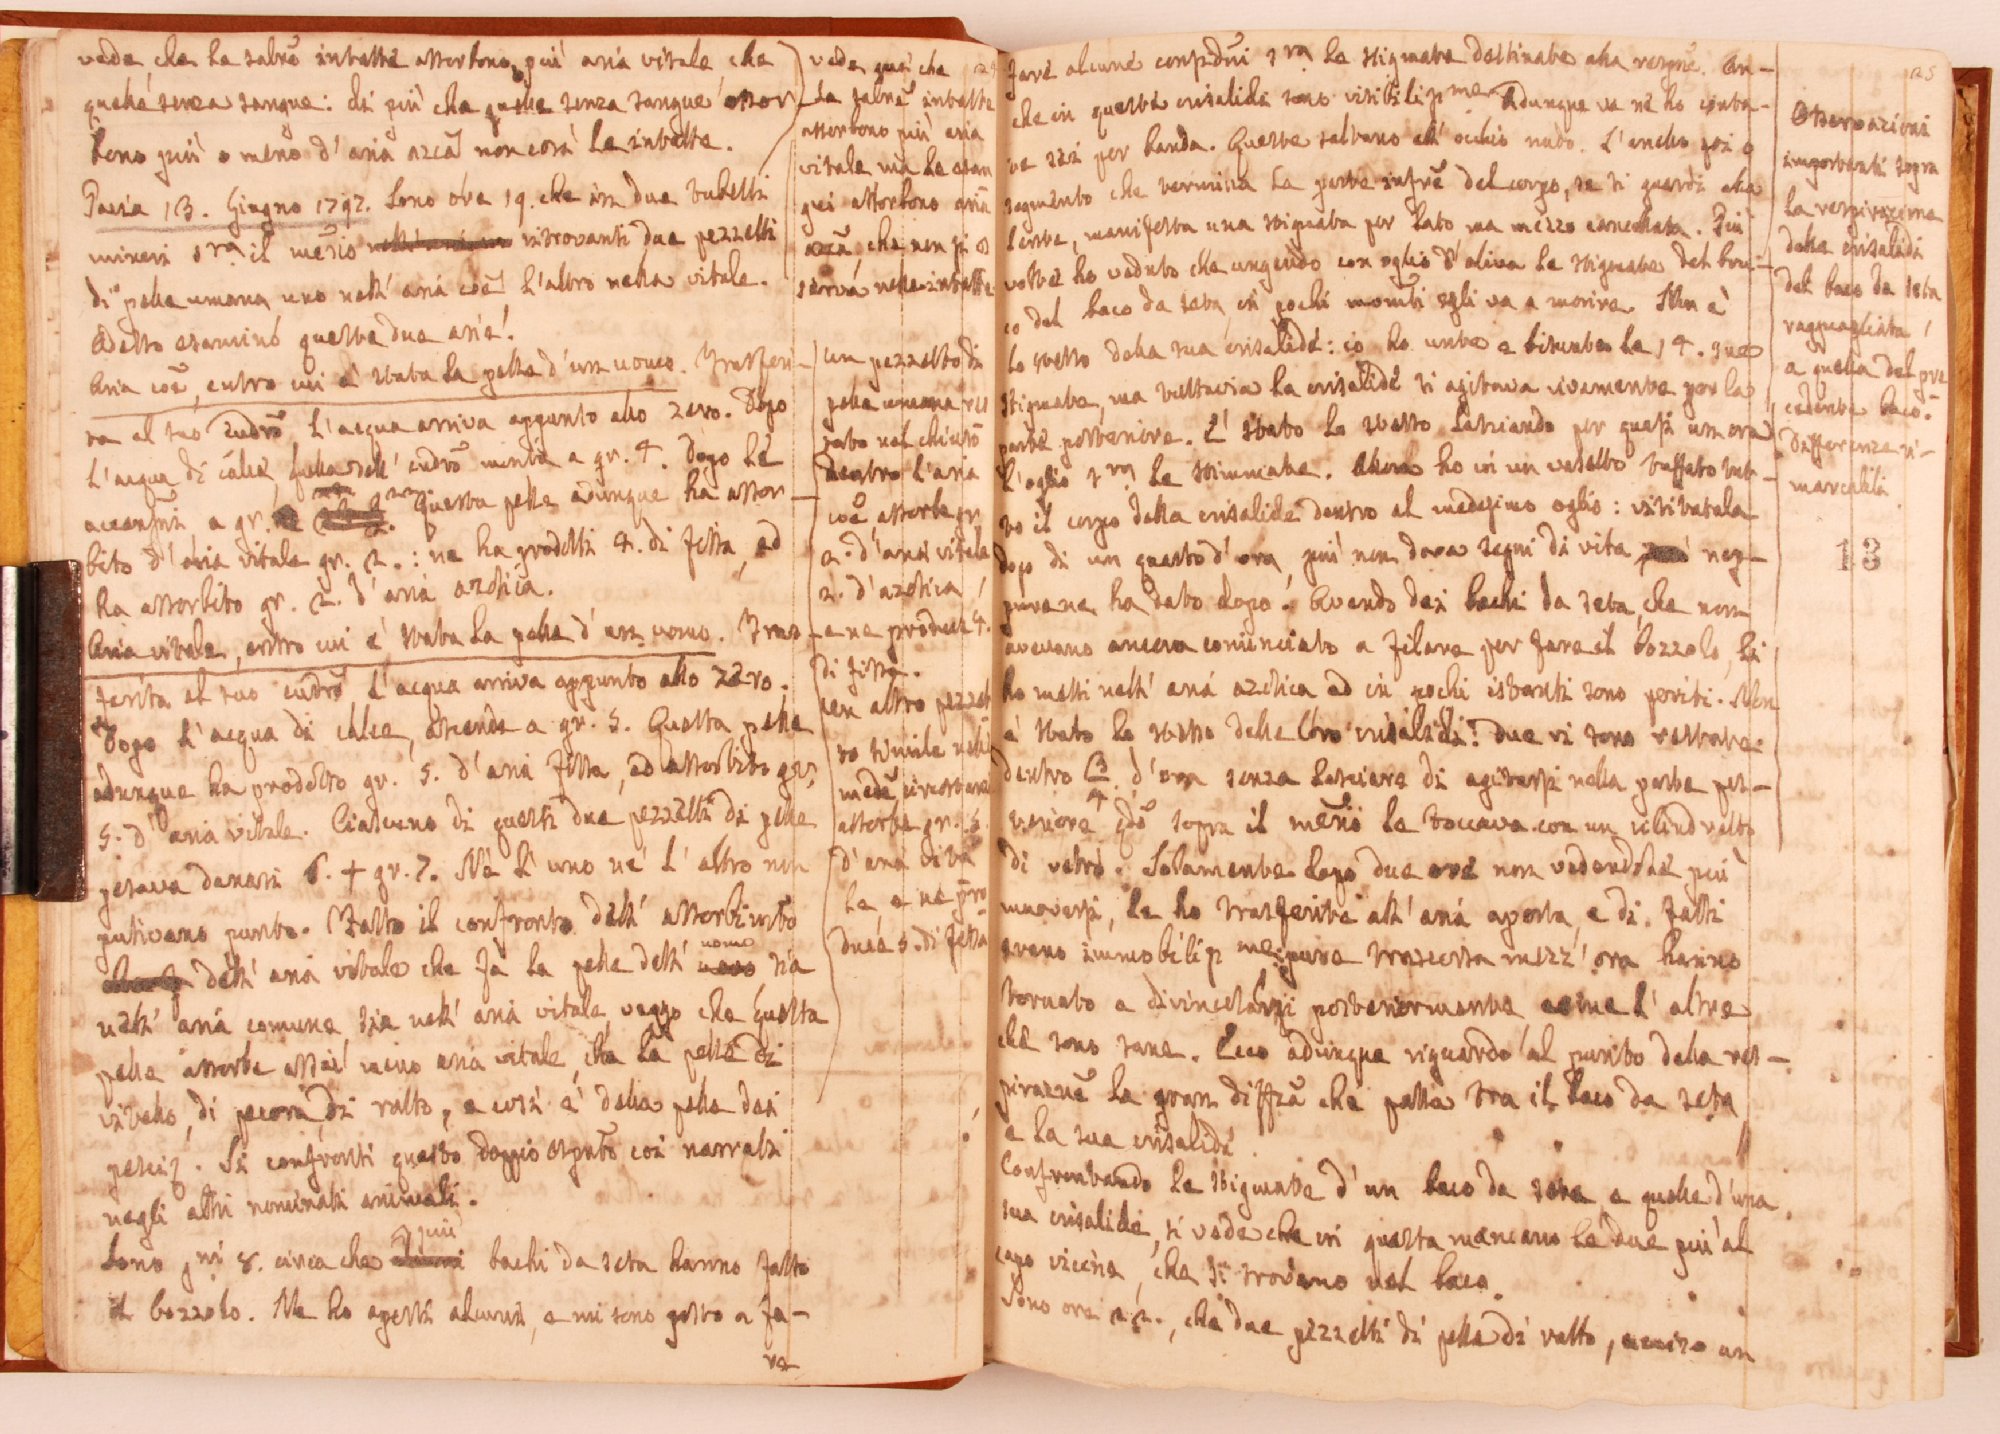 vede, che le salre intatte assorbono più aria vitale, che
quelle senza sangue: di più che quelle senza sangue assor-
bono più o meno d'aria azca non così le intatte.
Pavia 13. Giugno 1797. Sono ore 19. che in due tubetti
misi sra il merio ritrovanti due pezzetti
di pelle umana, uno nell'aria coe l'altro nella vitale.
Adesso esamino queste due arie.
Aria coe, entro cui è stata la pelle d'un uomo. Trasferi-
ta al suo eudro l'acqua arriva appunto allo zero. Dopo
l'acqua di calce, quella dell'eudro monta a gr. 4. Dopo le
accensni a gr. Questa pelle adunque ha assor-
bito d'aria vitale gr. 2.: ne ha prodotti 4. di fissa, ed
ha assorbito gr. 2. d'aria azotica.
Aria vitale, entro cui è stata la pelle d'un uomo. Tras-
ferita al suo eudro l'acqua arriva appunto allo zero.
Dopo l'acqua di calce, ascende a gr. 5. Questa pelle
adunque ha prodotto gr. 5. d'aria fissa, ed assorbito gr.
5. d'aria vitale. Ciascuno di questi due pezzetti di pelle
pesava danari 6. + gr. 7. Nè l'uno nè l'altro non
putivano punto. Fatto il confronto dell'assorbimto
dell'aria vitale che fa la pelle dell'uomo sia
nell'aria comune sia nell'aria vitale, veggo che questa
pelle assorbe assai meno aria vitale, che la pelle di
vitello, di pecora, di ratto, e così è della pelle dei
pesci. Si confronti questo doppio espmto coi narrati
negli altri nominati animali.
Sono gni 8. circa che più bachi da seta hanno fatto
il bozzolo. Ne ho aperti alcuni, e mi sono posto a fa-
re
vede qui che
le salre intatte
assorbono più aria
vitale ma le esan
gui assorbono aria
azca, che non si os
serva nelle intatte
Un pezzetto di
pelle umana ser
rato nel chiuso
dentro l'aria
coe assorbe gr.
2. d'aria vitale
2. d'azotica,
e ne produce 4.
di fissa.
Un altro pezzet
to simile nelle
mede circostanze
assorbe gr. 5.
d'aria vita
le, e ne pro
duce 5. di fissa
fare alcune consideni sra le stigmate destinate alla respne. An-
che in queste crisalidi sono visibilipme. Adunque ve ne ho conta-
te per banda. Queste saltano all'occhio nudo. L'anello poi o
segmento che termina la parte infre del corpo, se si guardi alla
lente, manifesta una stigmata per lato ma mezzo cancellata. Più
volte ho veduto che ungendo con oglio d'oliva le stigmate del bru-
co del baco da seta, in pochi momti egli va a morire. Non è
lo stesso della sua crisalide: io ho unte e bisunte le 14. sue
stigmate, ma tuttavia la crisalide si agitava vivamente per la
parte posteriore. È stato lo stesso lasciando per quasi un'ora
l'oglio sra le stimmate. Allora ho in un vasetto tuffato tut-
to il corpo della crisalide dentro al medesimo oglio: visitatala
dopo di un quarto d'ora, più non dava segni di vita nep-
pure ne ha dato dopo. Avendo dei bachi da seta, che non
avevano ancora cominciato a filare per fare il bozzolo, li
ho messi nell'aria azotica ed in pochi istanti sono periti. Non
è stato lo stesso delle loro crisalidi: due vi sono restate
dentro 3/4 d'ora senza lasciare di agitarsi nella parte pos-
teriore qdo sopra il merio le toccava con un cilindretto
di vetro. Solamente dopo due ore non vedendole più
muoversi, le ho trasferite all'aria aperta, e di fatti
erano immobilipme; pure trascorsa mezz'ora hanno
tornato a divincolarsi posteriormente come l'altre
che sono sane. Ecco adunque riguardo al punto della res-
pirazne la gran diffza che passa tra il baco da seta
e la sua crisalide.
Confrontando le stigmate d'un baco da seta e quelle d'una
sua crisalide, si vede che in questa mancano le due più al
capo vicine, che si trovano nel baco.
Sono ore 22., che due pezzetti di pelle di ratto, uno
25
Osservazioni
importanti sopra
la respirazione
della crisalide
del baco da seta
ragguagliata
a quella del pre
cedente baco:
Differenze ri-
marcabili
13